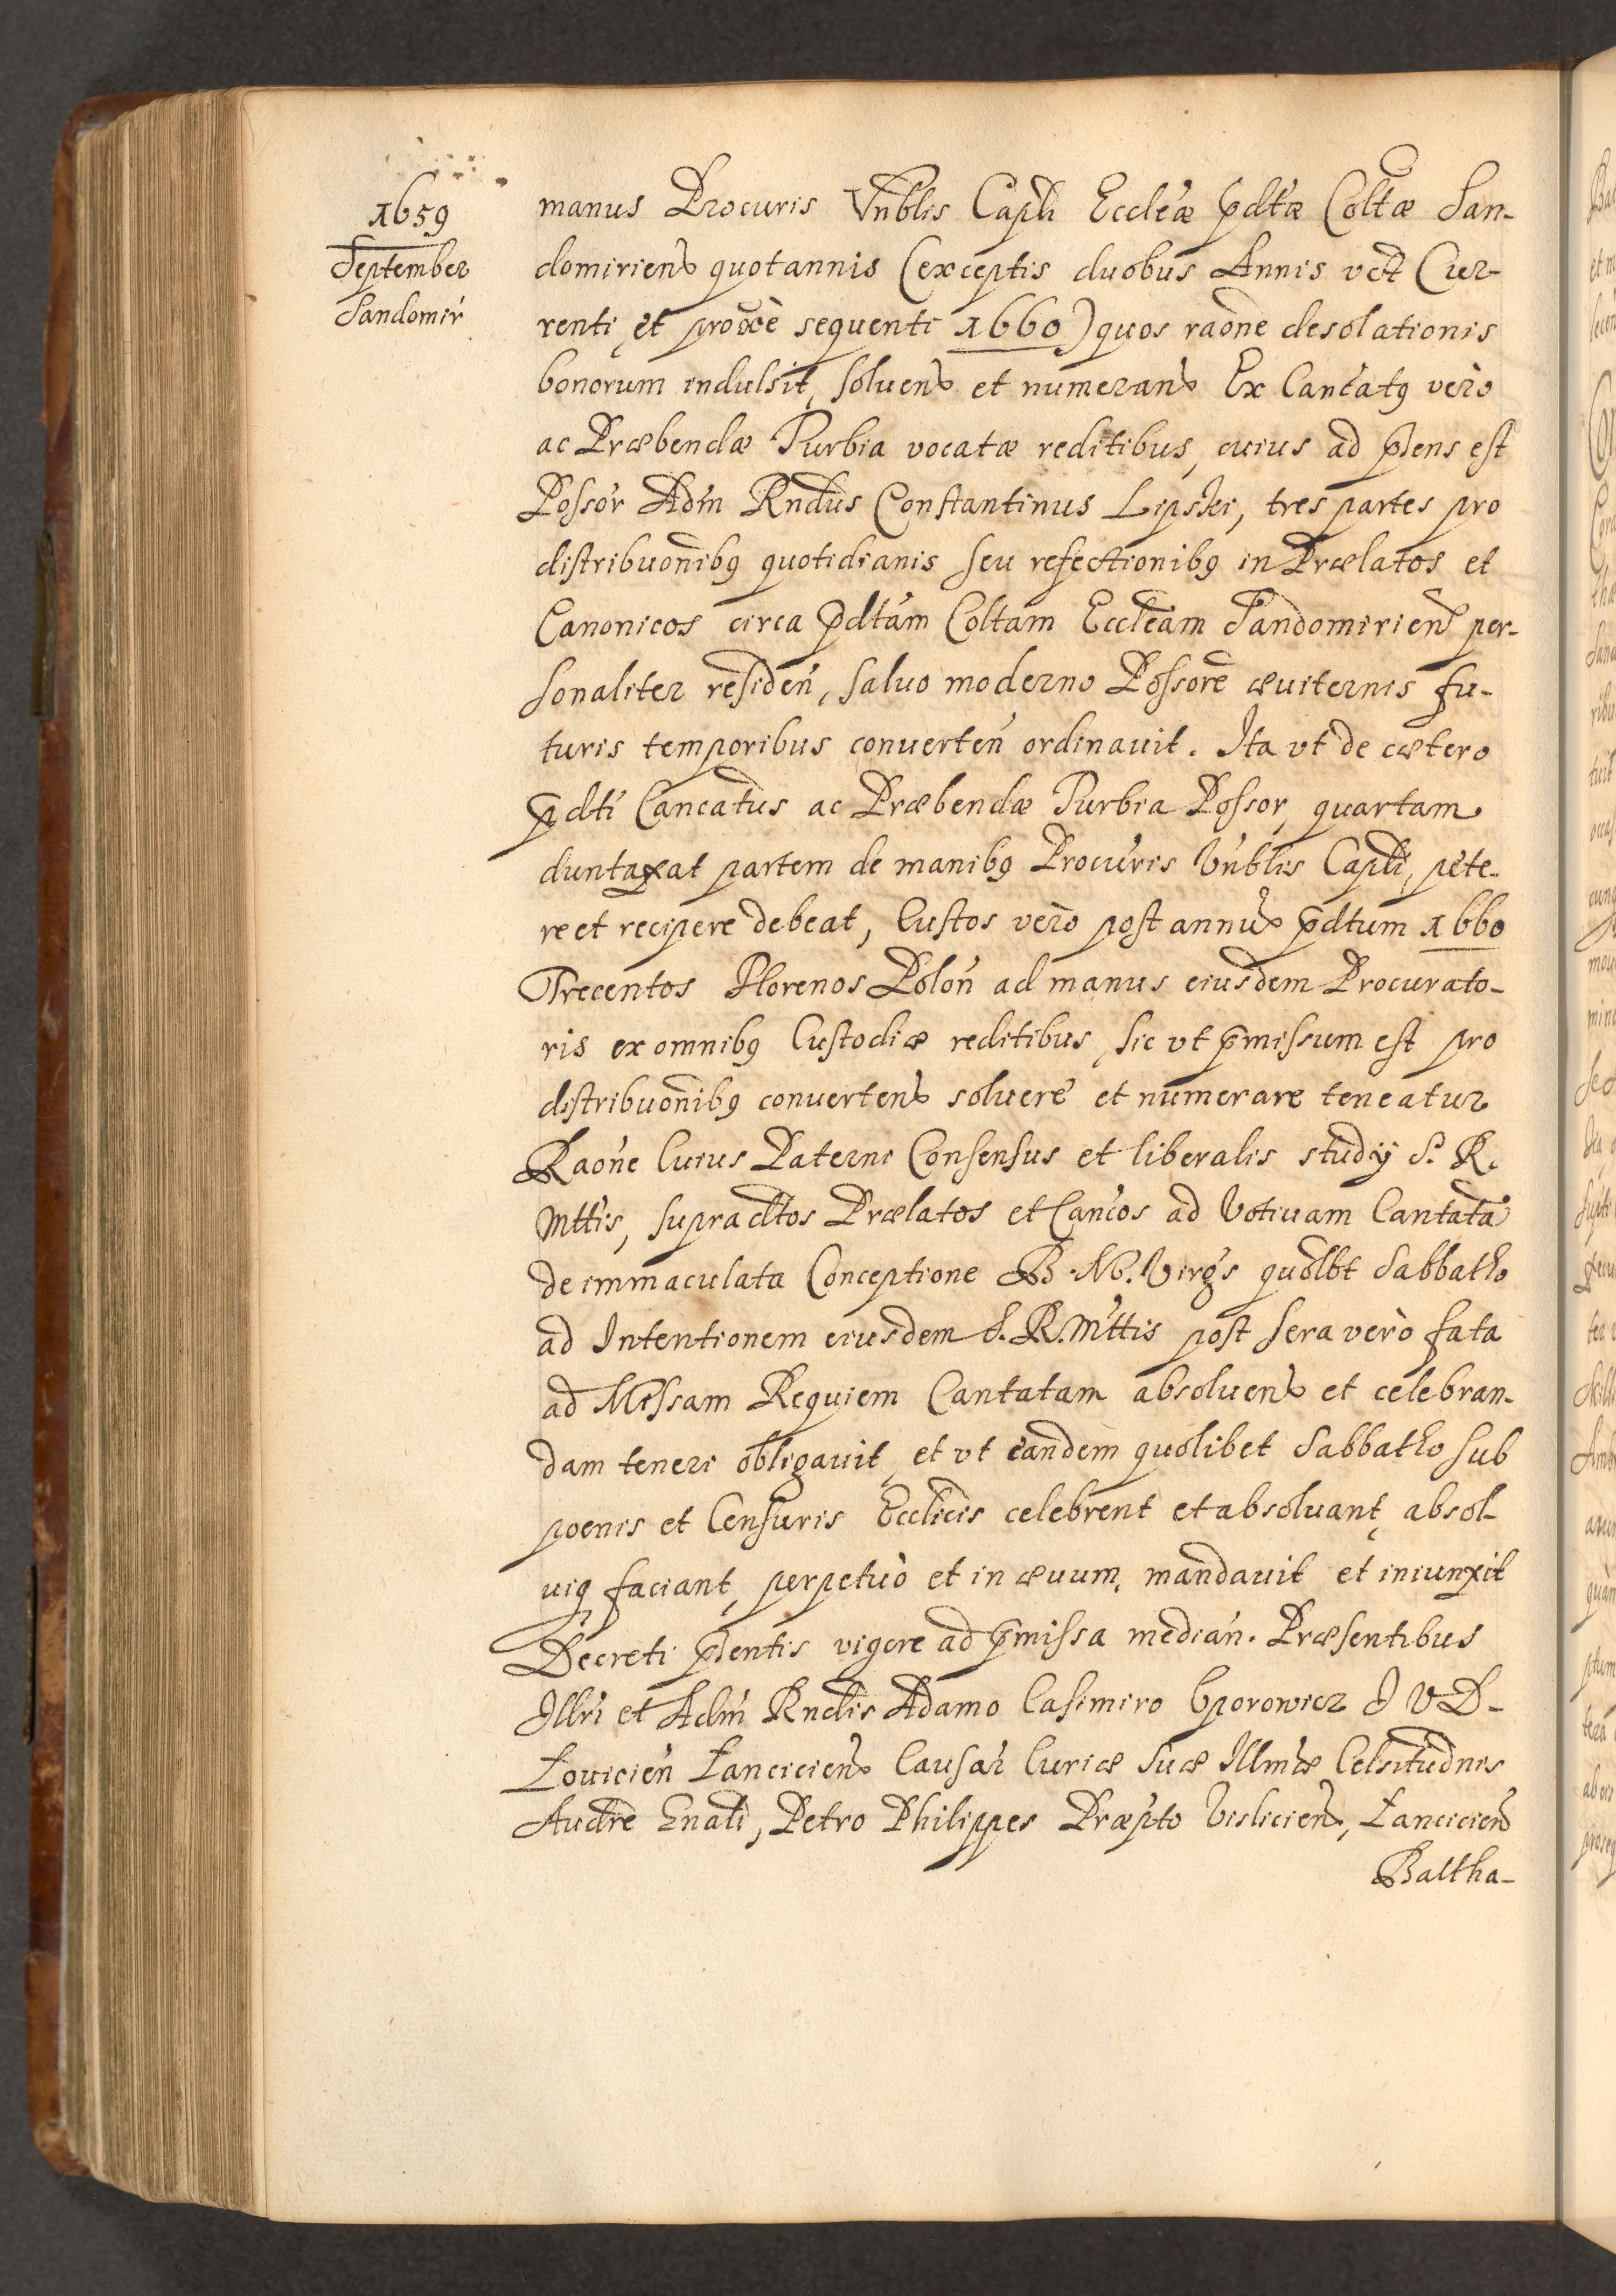 1659
September
Sandomir
manus Procuris Vnblis Capli Eccleæ p̄dtæ Coltæ San-
domiriens quotannis (exceptis duobus Annis vct Cur-
renti, et proxē sequenti 1660) quos raōne desolationis
bonorum indulsit, soluens et numerans Ex Cancatq vero
ac Præbendæ Turbia vocatæ reditibus, cuius ad p̄sens est
Possōr Adm Rndus Constantinus Lipski, tres partes pro
distribuōnibq quotidianis seu refectionibq in Prælatos et
Canonicos circa p̄dtam Coltam Eccleam Sandomiriens per-
sonaliter residen̄, saluo moderno Possore æuiternis fu-
turis temporibus conuerten̄ ordinauit. Ita vt de cætero
p̄dti Cancatus ac Præbendæ Turbia Possor, quartam
duntaxat partem de manibq Procuris Vnblis Capli, pete-
re et recipere debeat, Custos vero post annū p̄dtum 1660
Trecentos Florenos Polon̄ ad manus eiusdem Procurato-
ris ex omnibq Custodiæ reditibus, sic vt p̄missum est pro
distribuōnibq conuertens soluere et numerare teneatur
Raōne Cuius Paterni Consensus et liberalis studÿ S. R.
Mttis, supradtos Prælatos et Cancos ad Votiuam Cantatā
de immaculata Conceptione B. M. Virgs quolbt Sabbatho
ad Intentionem eiusdem S. R. Mttis post sera verò fata
ad Missam Requiem Cantatam absoluens et celebran-
dam teneri obligauit, et vt eandem quolibet Sabbatho sub
poenis et Censuris Ecclicis celebrent et absoluant, absol-
uiq faciant, perpetuò et in æuum, mandauit et iniunxit
Decreti p̄sentis vigore ad p̄missa median̄. Præsentibus
Illri et Adm Rndis Adamo Casimiro Oporowicz J V D-
Louicien̄ Lanciciens Causar Curiæ suæ Illmæ Celsitudnis
Audre Gnali, Petro Philippes Præpto Visliciens, Lanciciens
Baltha-